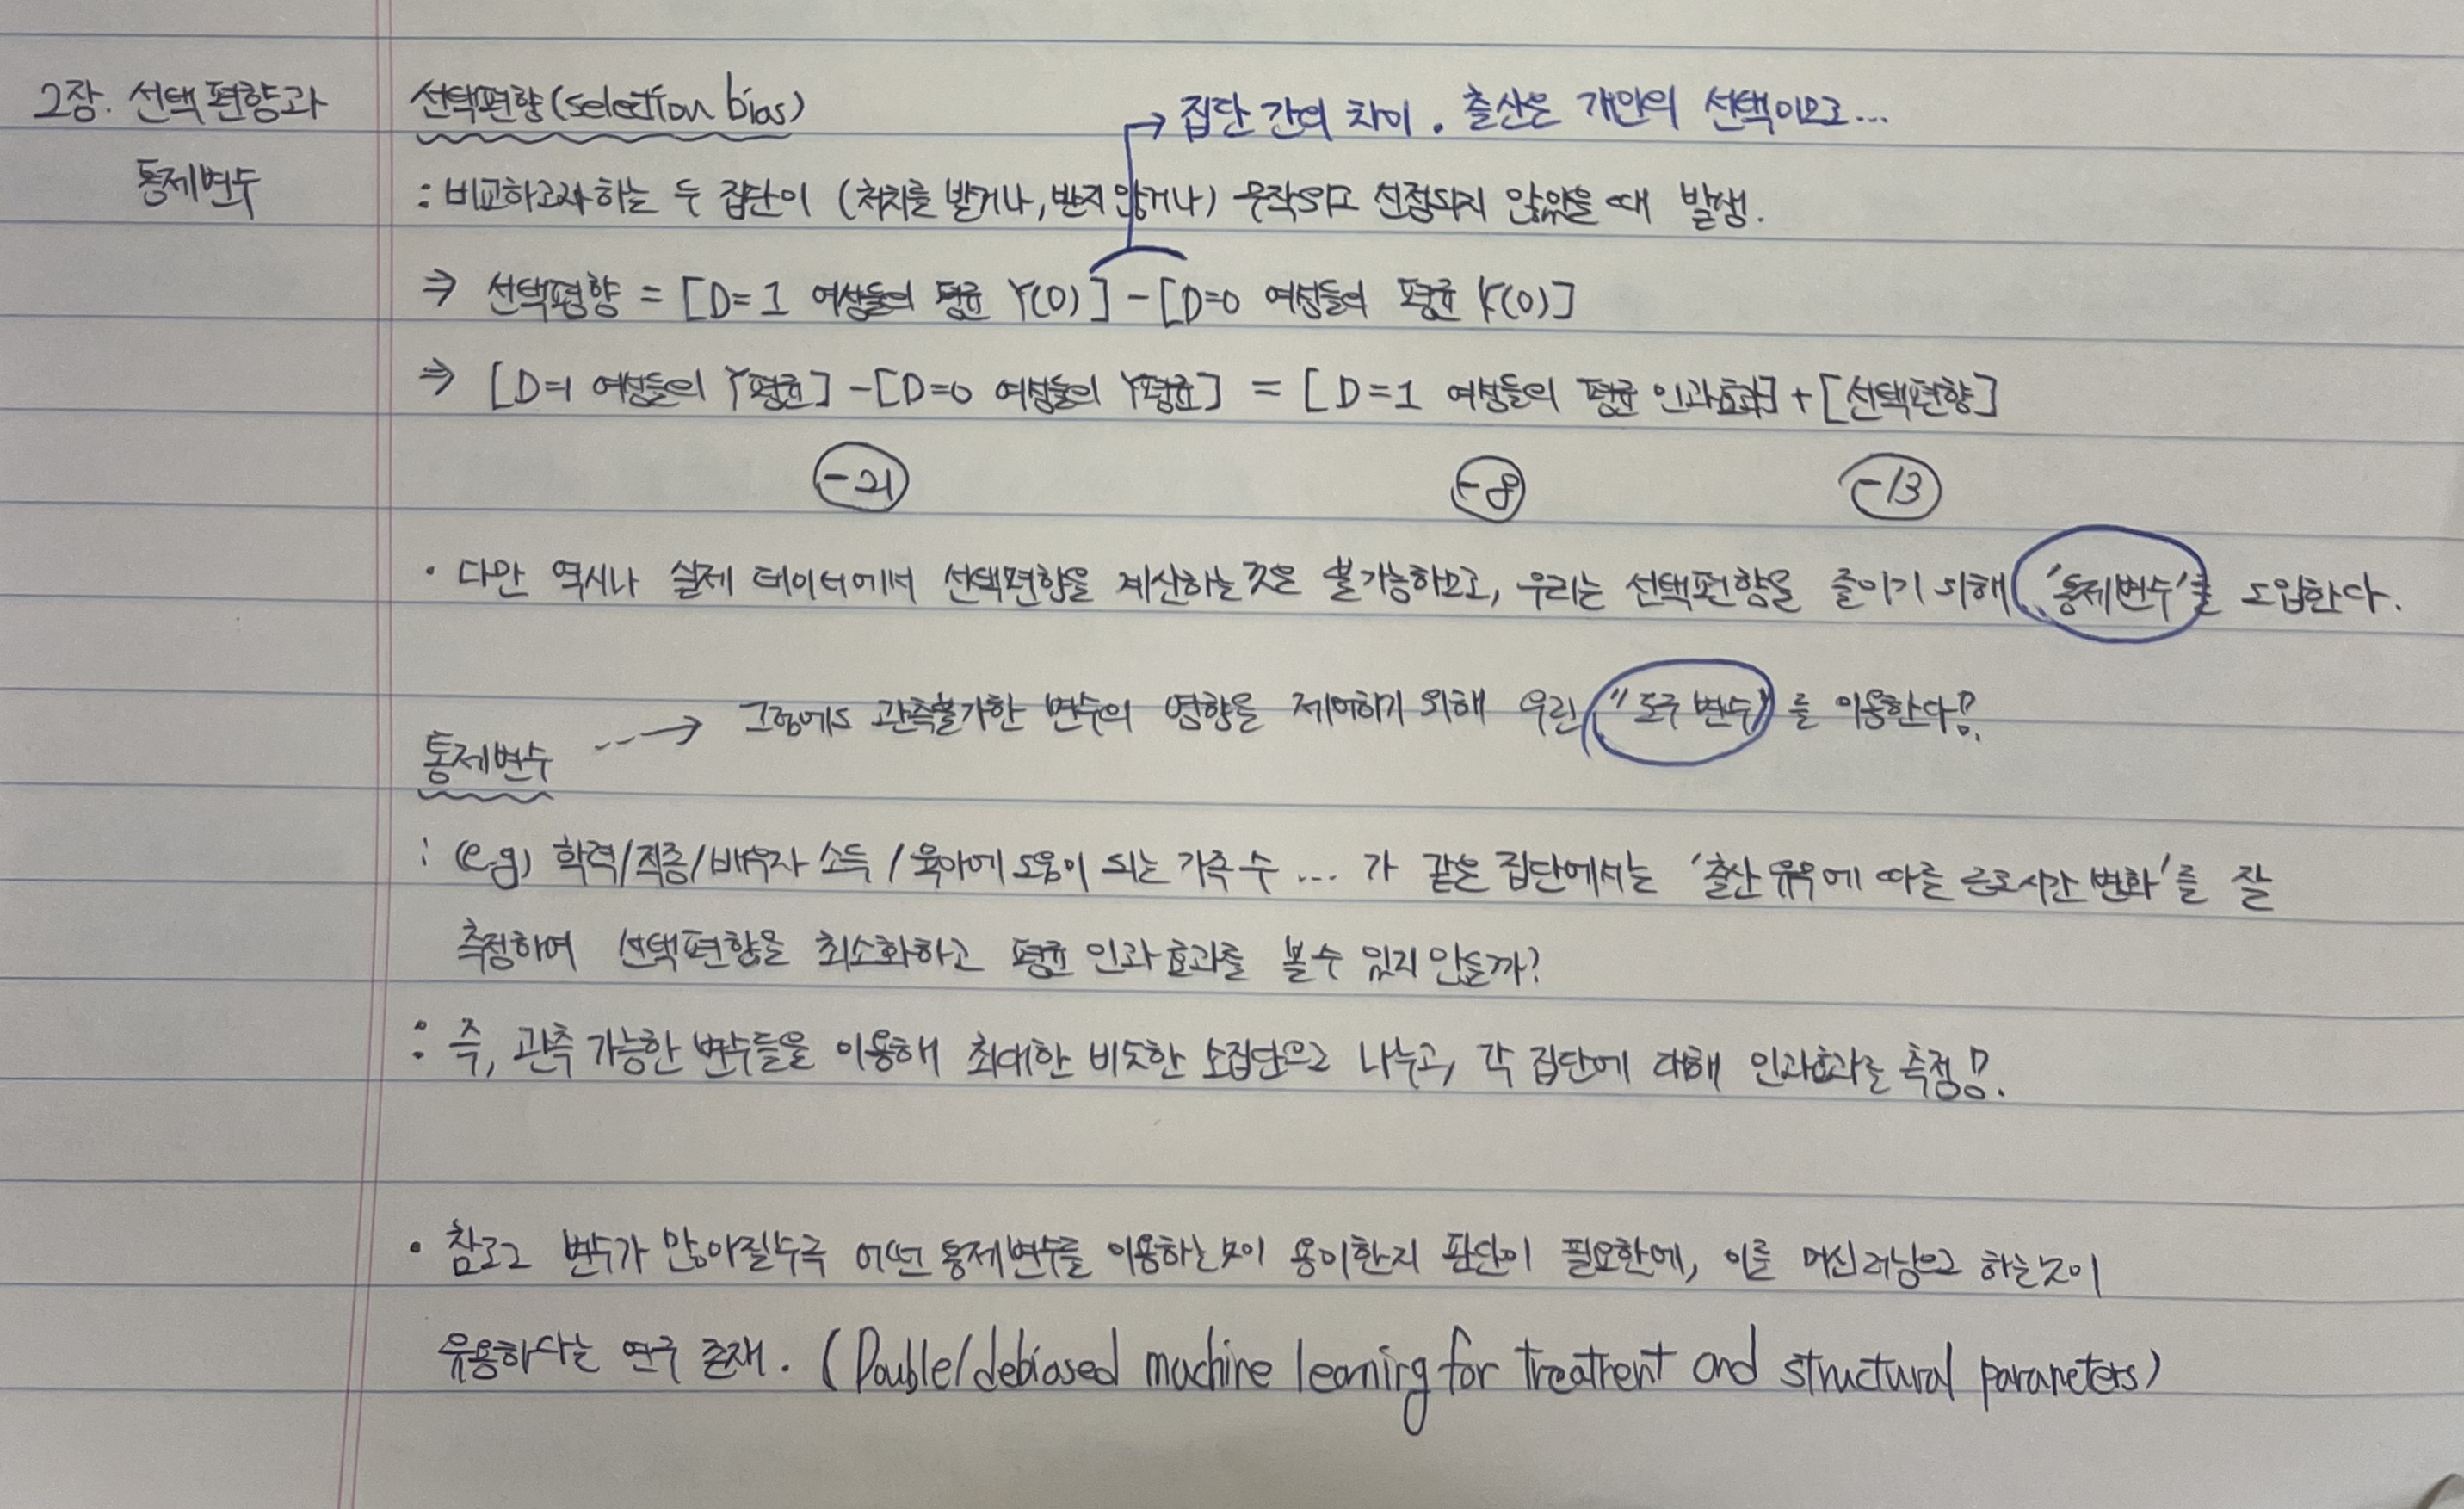 2장. 선택편향과
통제변수
선택편향(selection bias)
→ 집단 간의 차이. 출산은 개인의 선택이므로...
: 비교하고자 하는 두 집단이 (처치를 받거나, 받지 않거나) 무작위로 선정되지 않았을 때 발생.
⇒ 선택편향 = [D=1 여성들의 평균 Y(0)] - [D=0 여성들의 평균 Y(0)]
⇒ [D=1 여성들의 Y평균] - [D=0 여성들의 Y평균] = [D=1 여성들의 평균 인과효과] + [선택편향]
-21 -8 -13
· 다만 역시나 실제 데이터에서 선택편향을 계산하는 것은 불가능하므로, 우리는 선택편향을 줄이기 위해 '통제변수'를 도입한다.
통제변수 --→ 그럼에도 관측불가한 변수의 영향을 제어하기 위해 우린 "도구 변수"를 이용한다!!
: (e.g) 학력/직종/배우자 소득/육아에 도움이 되는 가족 수 ... 가 같은 집단에서는 '출산 유무에 따른 근로시간 변화'를 잘
측정하여 선택편향을 최소화하고 평균 인과 효과를 볼 수 있지 않을까?
: 즉, 관측 가능한 변수들을 이용해 최대한 비슷한 소집단으로 나누고, 각 집단에 대해 인과효과를 측정!!
· 참고로 변수가 많아질수록 어떤 통제변수를 이용하는 것이 용이한지 판단이 필요한데, 이를 머신러닝으로 하는 것이
유용하다는 연구 존재. (Double/debiased machine learning for treatment and structural parameters)